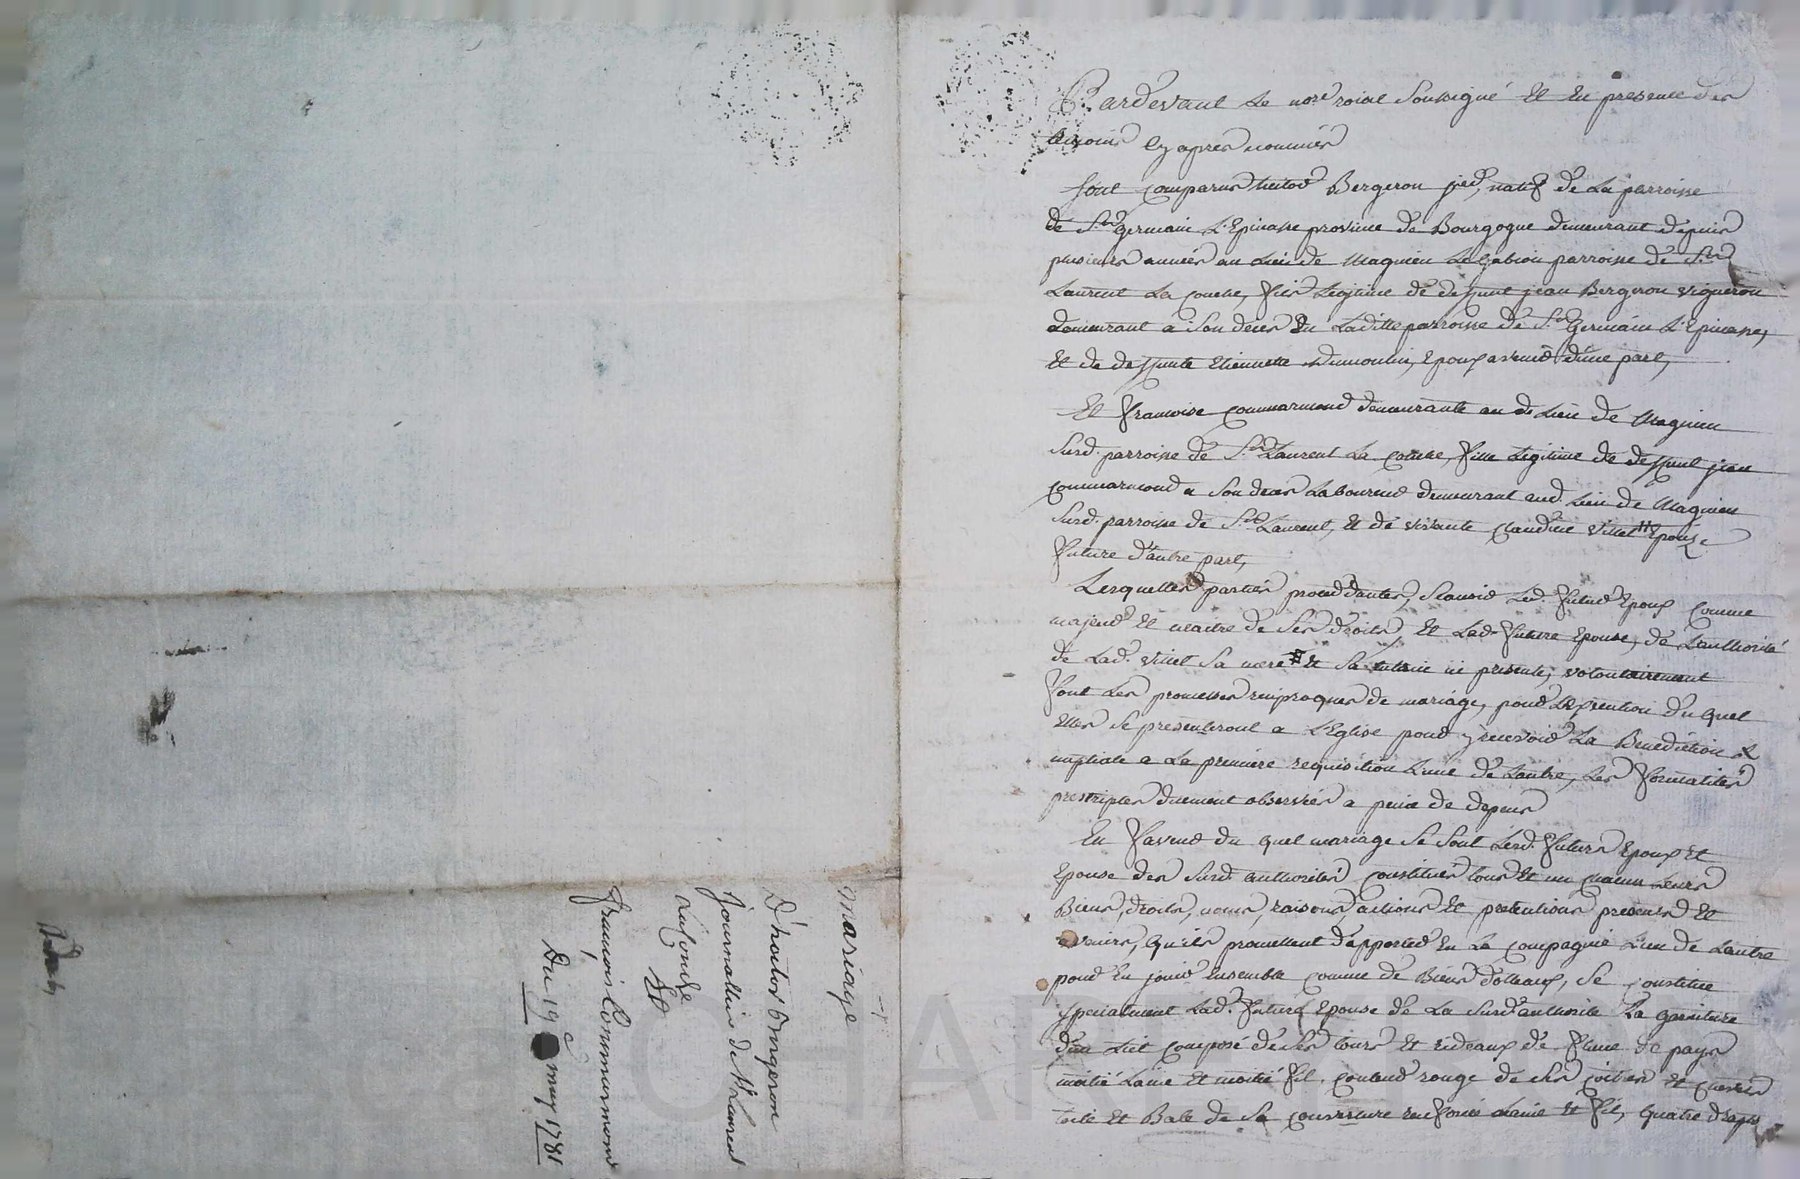 Pardevant Le nore roial Soussigné Et En presence des
temoins Cy apres nommés
Sont Comparus hector Bergeron jred, natif de La parroisse
de St germain L'Epinasse province de Bourgogne demeurant depuis
plusieurs années au Lieu de Magnieu Le gabion parroisse de St
Laurent La Conche, fils Legitime de deffunt jean Bergeron vigneron
demeurant a Son deces En Laditte parroisse de St Germain L'Epinasse,
Et de deffunte Etiennette Dumoulin, Epoux avenir d'une part,
Et francoise Commarmond demeurante au d Lieu de Magnieu
Surd. parroisse de St Laurent La Conche, fille Légitime de deffunt jean
Commarmond a Son deces Laboureur demeurant aud. Lieu de Magnieu
Surd. parroisse de St Laurent, Et de vivante Claudine Villet Epouse
future d'autre part,
Lesquelles parties procedantes, Scavoir Led. futur Epoux Comme
majeur Et maitre de Ses droits, Et Lad. future Epouse, de L'authorité
de Lad. Villet Sa mere Et Sa tutrice ici presente, volontairement
font Les promesses reciproques de mariage, pour L'Exécution du quel
Elles Se presenteront a L'Eglise pour y recevoir La Benediction
nuptiale a La premiere requisition L'une de L'autre, Les formalités
prescriptes duement observées a peine de depens
En faveur du quel mariage Se Sont Lesd. futurs Epoux Et
Epouse des Surd. authorités Constitués tous Et un Chacun Leurs
Biens, droits, noms, raisons, actions Et pretentions presents Et
avenirs, qu'ils promettent d'apporter En La Compagnie L'un de L'autre
pour En jouir Ensemble Comme de Biens dottaux, Se Constitue
Specialement Lad. future Epouse de La Surd. authorité La garniture
d'un Lict Composé de Ses tours Et rideaux de de pays
moitié Laine Et moitié fil, Couleur rouge de Ses Coitre Et Cuessin
toile Et Bale de Sa Couverture Laine Et fil, quatre draps
mariage
D'hector Bergeron
Journallier de St Laurent
La Conche
Et
françoise Commarmond
Du 19 may 1781
CHAR